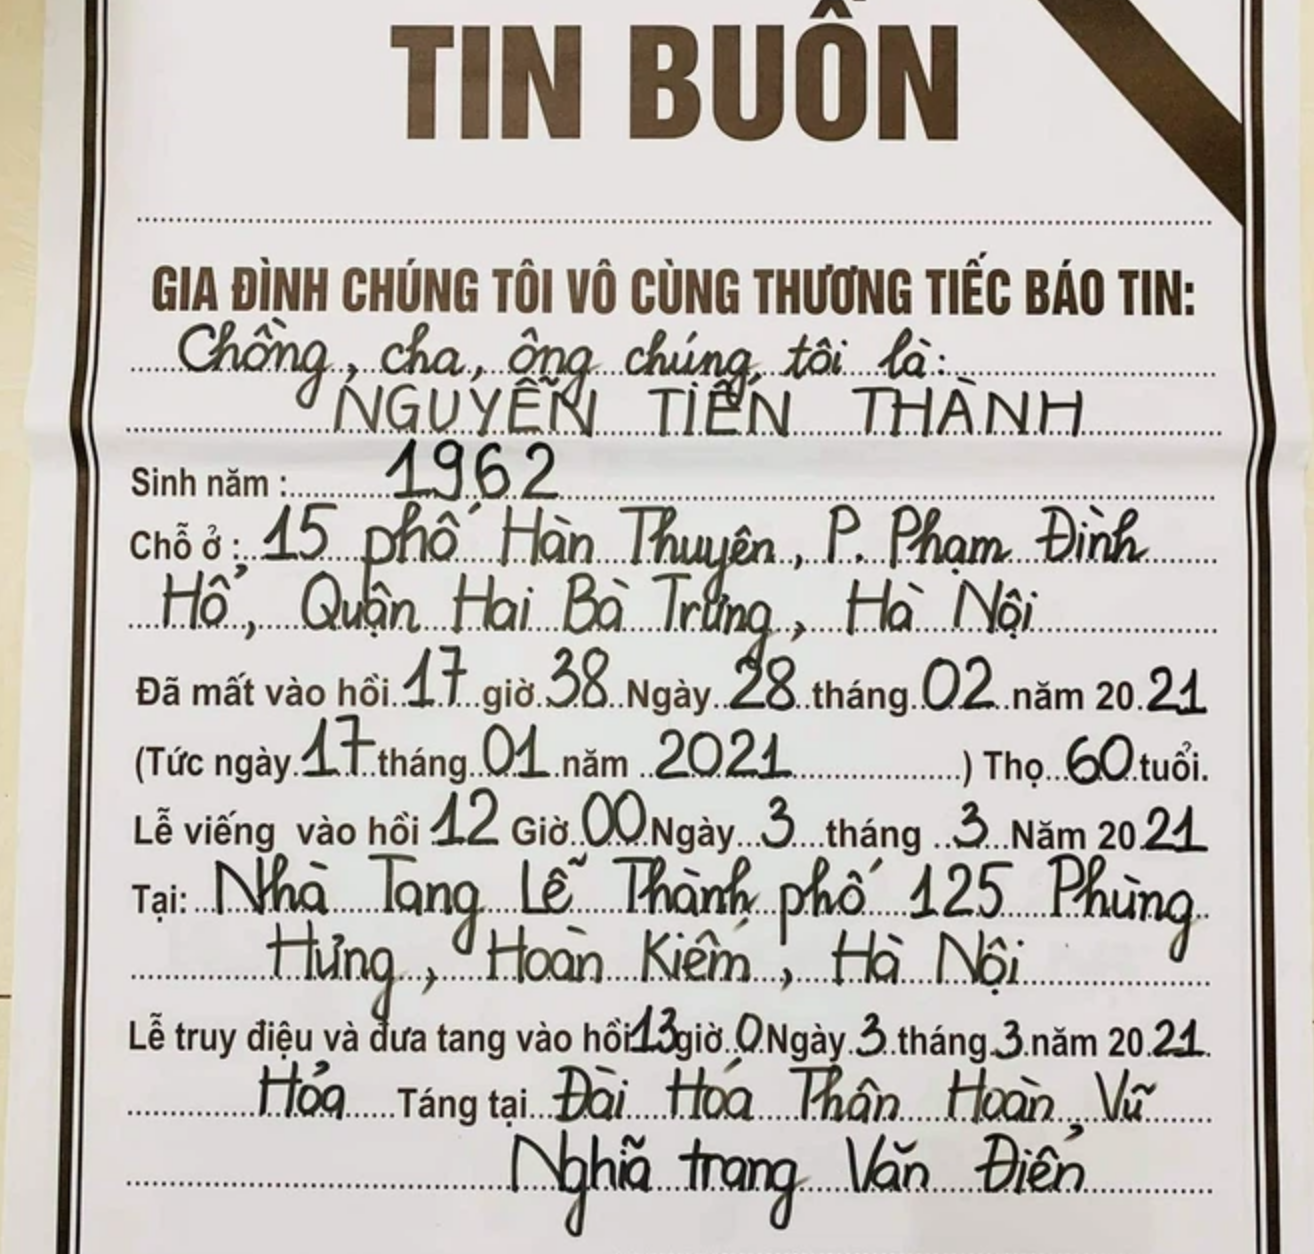 TIN BUỒN
GIA ĐÌNH CHÚNG TÔI VÔ CÙNG THƯƠNG TIẾC BÁO TIN:
Chồng, cha, ông chúng tôi là:
NGUYỄN TIẾN THÀNH
Sinh năm : 1962
Chỗ ở : 15 phố Hàn Thuyên, P. Phạm Đình
Hổ, Quận Hai Bà Trưng, Hà Nội
Đã mất vào hồi 17 giờ 38 Ngày 28 tháng 02 năm 2021
(Tức ngày 17 tháng 01 năm 2021 ) Thọ 60 tuổi.
Lễ viếng vào hồi 12 Giờ 00 Ngày 3 tháng 3 Năm 2021
Tại: Nhà Tang Lễ Thành phố 125 Phùng
Hưng, Hoàn Kiếm, Hà Nội
Lễ truy điệu và đưa tang vào hồi 13 giờ 0 Ngày 3 tháng 3 năm 2021
Hỏa Táng tại Đài Hoá Thân Hoàn Vũ
Nghĩa trang Văn Điển